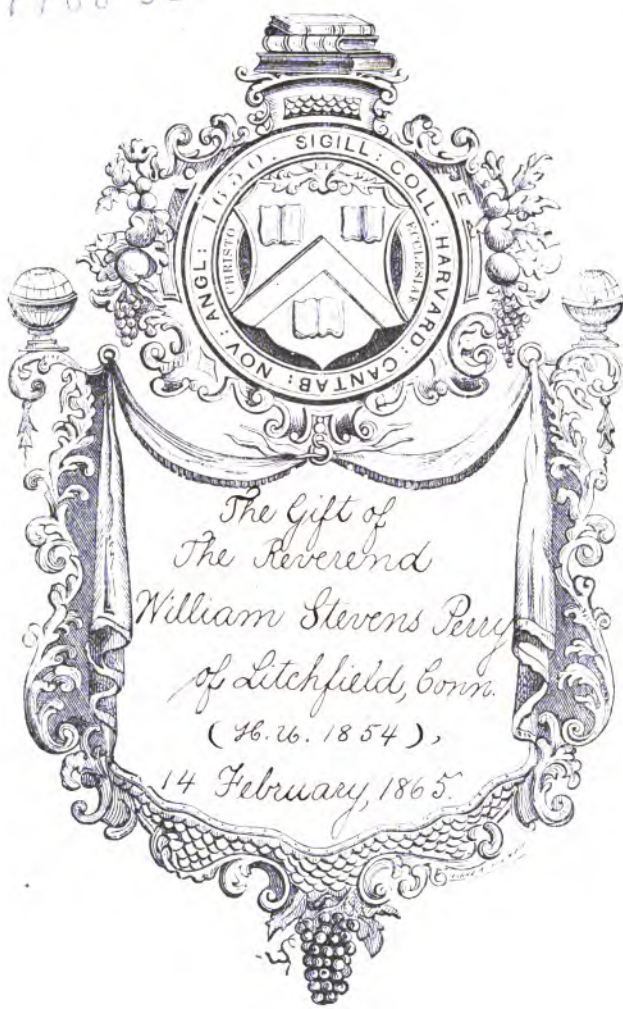 SIGILL: COLL: HARVARD: CANTAB: NOV: ANGL: 1650.
CHRISTO
ET
ECCLESIAE
The Gift of
The Reverend
William Stevens Perry
of Litchfield, Conn.
(H. U. 1854),
14 February, 1865.